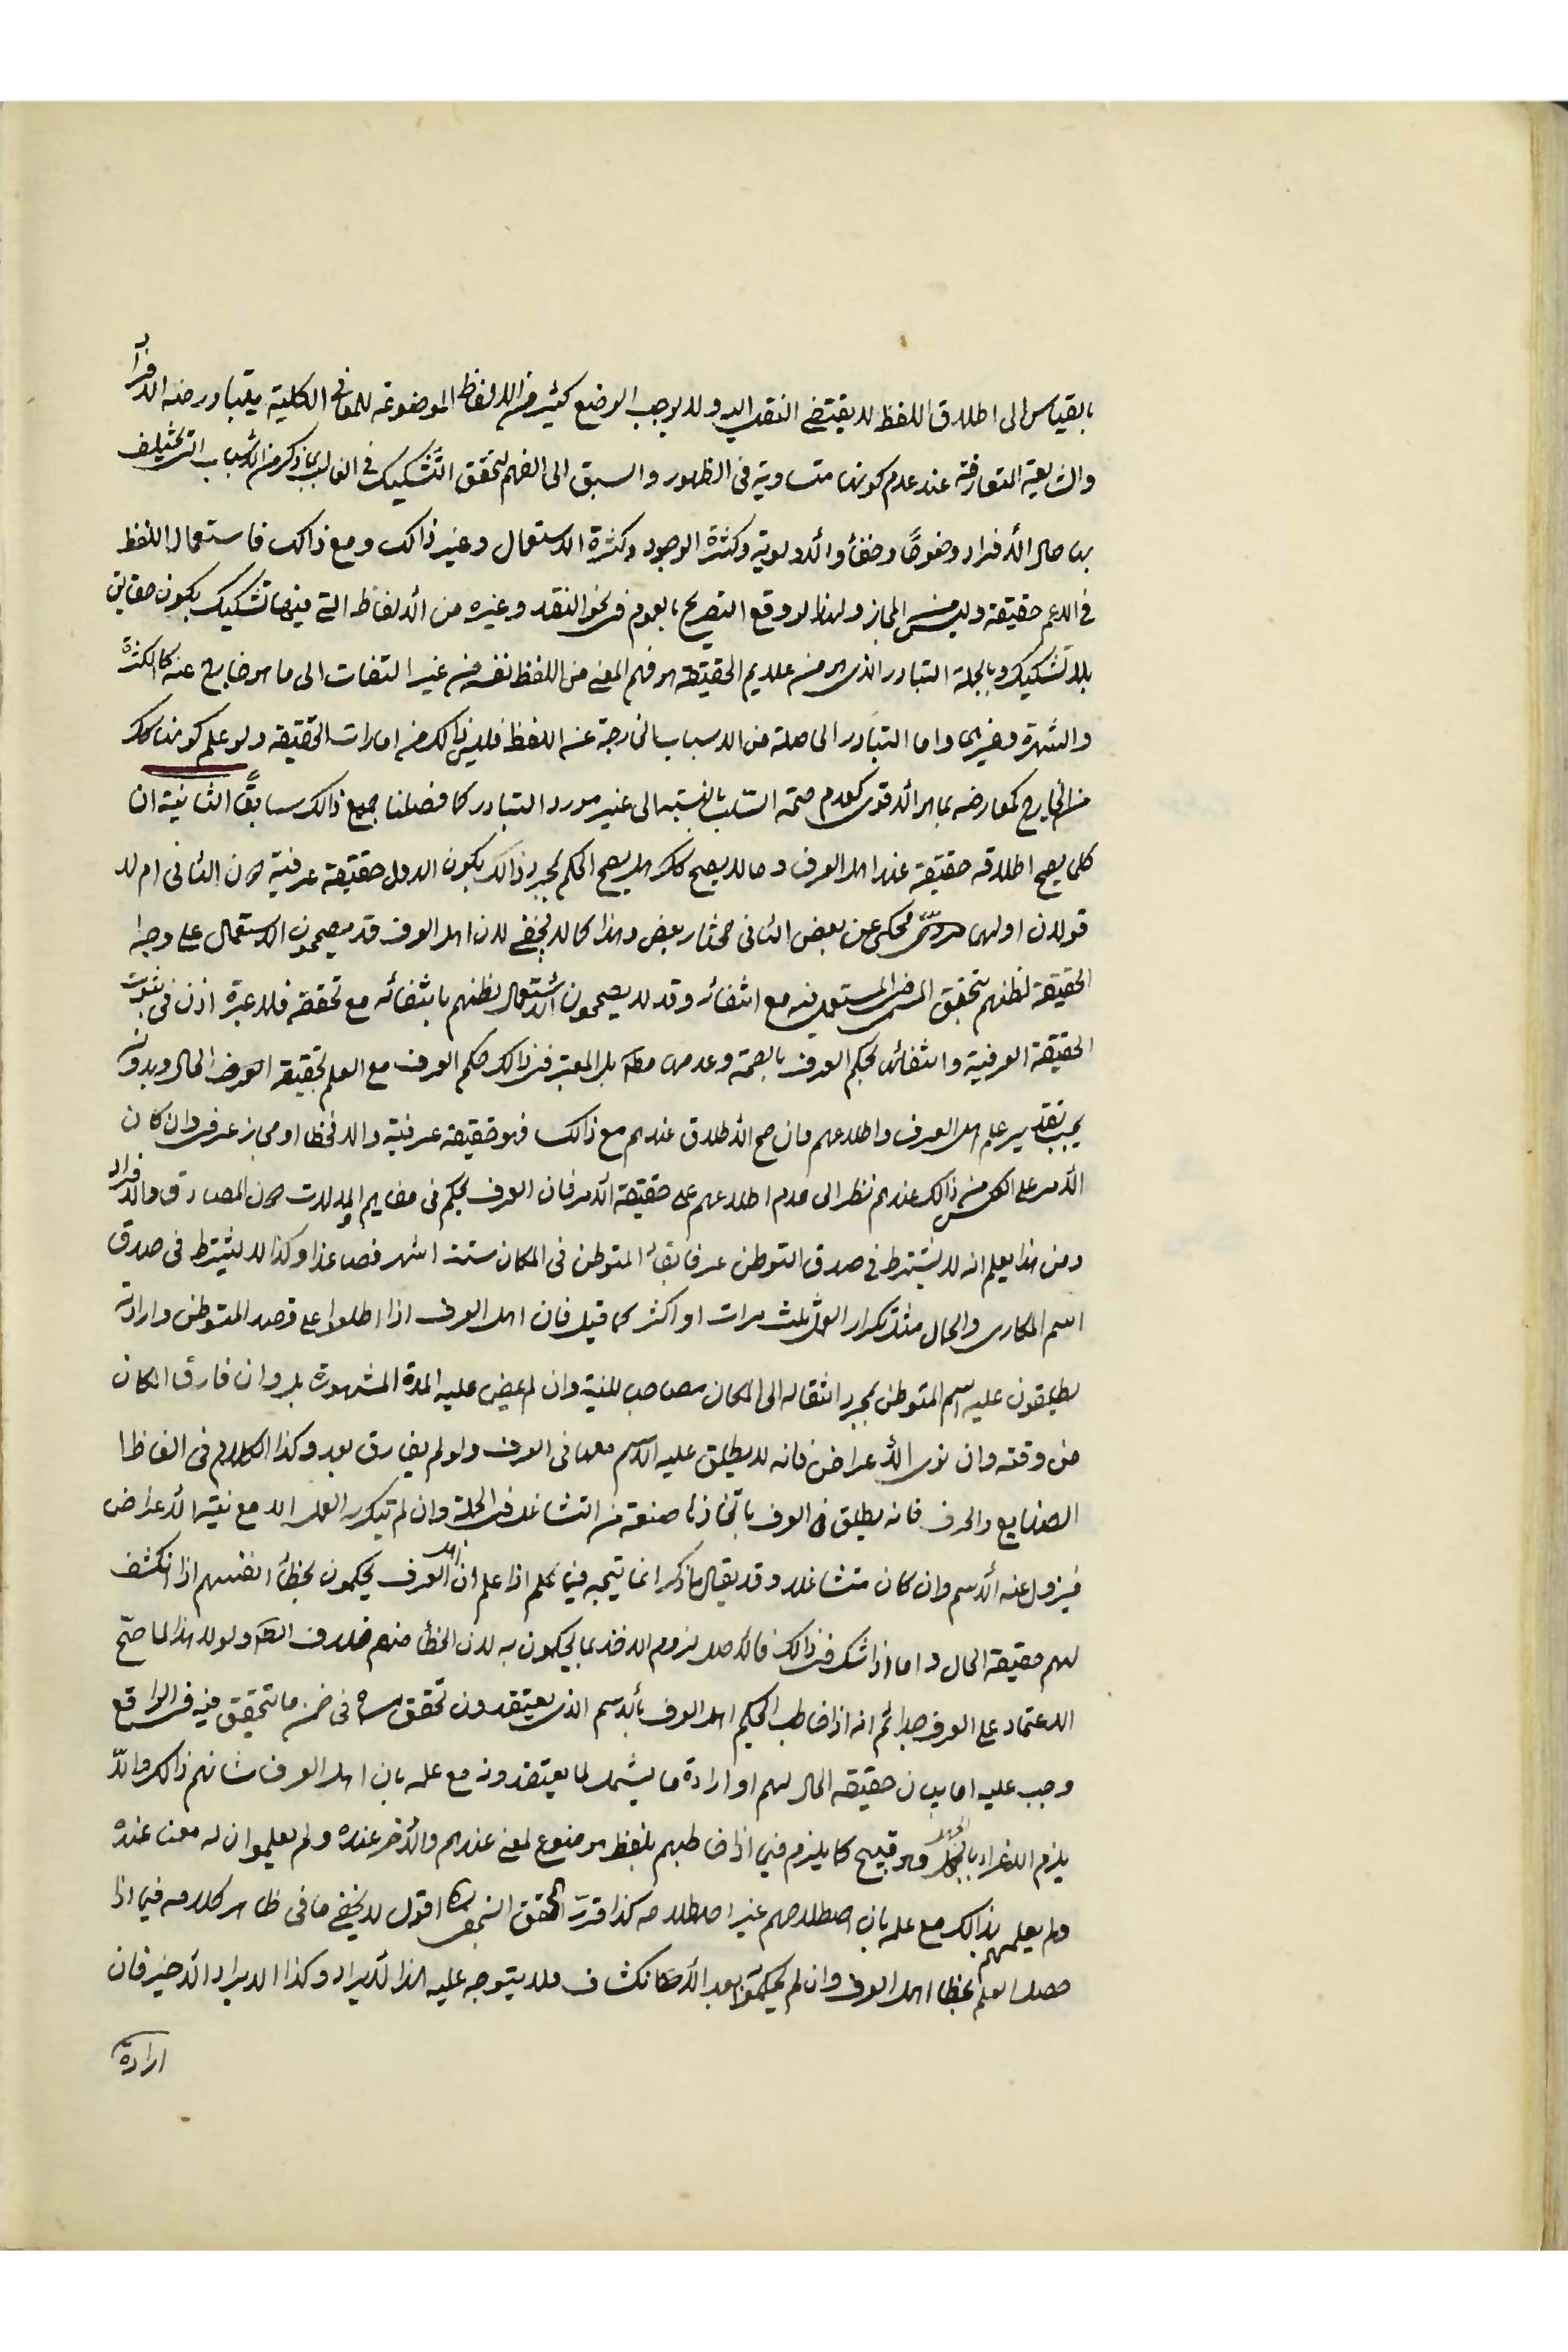 بالقياس الى اطلاق اللفظ لا يقتضى النقل اليه ولا يوجب الوضع كثير من الالفاظ الموضوعة للمعانى الكلية يتبادر منه الافراد
والشايعة المتعارفة عند عدم كونها متساوية فى الظهور والسبق الى الفهم لتحقق التشكيك فى الغالب بما ذكر من الاسباب التى يختلف
بها حال الأفراد وضوحًا وخفأ والأولوية وكثرة الوجود وكثرة الاستعمال وغير ذالك ومع ذالك فاستعمال اللفظ
فى الاعم حقيقة وليس من المجاز ولهذا لو وقع التصريح بالعموم فى نحو النقد وغيره من الألفاظ التى فيها تشكيك يكون حقايق
بلا تشكيك وبالجملة التبادر الذى هو من علايم الحقيقة هو فهم المعنى من اللفظ نفسه من غير التفات الى ما هو خارج عنه كالكثرة
والشهرة وغيرها واما التبادر الحاصلة من الاسباب الخارجة عن اللفظ فليس ذالك من امارات الحقيقة ولو علم كونها كك
من الخارج كمعارضه بما هو الأقوى كعدم صحة السّلب بالنسبة الى غير مورد التبادر كما فصلنا جميع ذالك سابقًا الثانية ان
كلما يصح اطلاقه حقيقة عند اهل العرف وما لا يصح كك هل يصح الحكم بمجرد ذالك بكون الاول حقيقة عرفية دون الثانى ام لا
قولان اولهما محكى عن بعض الثانى مختار بعض وهذا كما لا يخفى لان اهل العرف قد يصححون الاستعمال على وجه
الحقيقة لظنهم بتحقق المعنى المستعمل فيه مع انتفائه وقد لا يصححون الأستعمال لظنهم بانتفائه مع تحققه فلا عبرة اذن فى ثبوت
الحقيقة العرفية وانتفائها بحكم العرف بالصحة وعدمها مطلقا بل المعتبر فى ذالك حكم العرف مع العلم بحقيقة الحال وبدونه
يجب تقدير علم اهل العرف واطلاعهم فان صح الأطلاق عندهم مع ذالك فهو حقيقة عرفية والا فخطا او مجاز عرفى وان كان
الأمر على العكس من ذالك عندهم نظرا الى عدم اطلاعهم على حقيقة الأمر فان العرف يحكم فى مفاهيم المدلولات دون المصادق والافراد
ومن هذا يعلم انه لا يشترط فى صدق التوطن عرفا بقأ المتوطن فى المكان ستة اشهر فصاعدا وكذا لا يشترط فى صدق
اسم المكارى والجمال مثلا تكرار العمل ثلث مرات او اكثر كما قيل فان اهل العرف اذا اطلعوا على قصد المتوطن وارادته
يطلقون عليه اسم المتوطن بمجرد انتقاله الى المكان مصاحب للنية وان لم يمض عليه المدة المشهورة بل وان فارق المكان
من وقته وان نوى الأعراض فانه لا يطلق عليه الاسم معها فى العرف ولو لم يفارق بعد وكذا الكلام فى الفاظ
الصنايع والحرف فانه يطلق فى العرف باتخاذها صنعة مع التشاغل فى الجملة وان لم يتكرر العمل الا مع نية الأعراض
فيزول عنه الأسم وان كان متشاغلا وقد يقال ما ذكر انما يتجه فيما علم اذا علم ان اهل العرف يحكمون بخطأ انفسهم اذا انكشف
لهم حقيقة الحال واما اذا شك فى ذالك فالاصل لزوم الاخذ بما يحكمون به لان الخطأ منهم خلاف الظاهر ولولا هذا لما صحّ
الاعتماد على العرف جدا ثم انه اذا خاطب الحكيم اهل العرف بالأسم الذى يعتقدون تحقق مسماه فى ضمن ما يتحقق فيه فى الواقع
وجب عليه اما بيان حقيقة الحال لهم او ارادة ما يشمل لما يعتقدونه مع علمه بان اهل العرف شانهم ذالك والّا
يلزم الاغراء بالجهل وهو قبيح كما يلزم فيما اذا خاطبهم بلفظ موضوع لمعنى عندهم والأخر عنده ولم يعلموا ان له معنا عنده
ولم يعلمهم بذالك مع علمه بان اصطلاحهم غير اصطلاحه كذا قرر المحقق اقول لا يخفى ما فى ظاهر كلامه فيما اذا
حصل العلم بخطا اهل العرف وان لم يحكموا بعد الأنكشاف فلا يتوجه عليه هذا الأيراد وكذا الايراد الأخير فان
ارادة